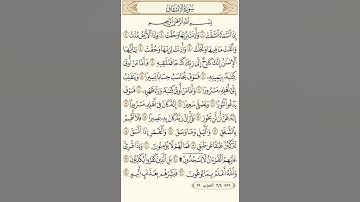 سُورَةُ الِانشِقَاقِ
بِسْمِ ٱللَّهِ ٱلرَّحْمَٰنِ ٱلرَّحِيمِ
إِذَا ٱلسَّمَآءُ ٱنشَقَّتْ ١ وَأَذِنَتْ لِرَبِّهَا وَحُقَّتْ ٢ وَإِذَا ٱلْأَرْضُ مُدَّتْ ٣
وَأَلْقَتْ مَا فِيهَا وَتَخَلَّتْ ٤ وَأَذِنَتْ لِرَبِّهَا وَحُقَّتْ ٥ يَٰٓأَيُّهَا
ٱلْإِنسَٰنُ إِنَّكَ كَادِحٌ إِلَىٰ رَبِّكَ كَدْحًا فَمُلَٰقِيهِ ٦ فَأَمَّا مَنْ أُوتِىَ
كِتَٰبَهُۥ بِيَمِينِهِۦ ٧ فَسَوْفَ يُحَاسَبُ حِسَابًا يَسِيرًا ٨ وَيَنقَلِبُ
إِلَىٰٓ أَهْلِهِۦ مَسْرُورًا ٩ وَأَمَّا مَنْ أُوتِىَ كِتَٰبَهُۥ وَرَآءَ ظَهْرِهِۦ ١٠ فَسَوْفَ
يَدْعُوا۟ ثُبُورًا ١١ وَيَصْلَىٰ سَعِيرًا ١٢ إِنَّهُۥ كَانَ فِىٓ أَهْلِهِۦ مَسْرُورًا ١٣
إِنَّهُۥ ظَنَّ أَن لَّن يَحُورَ ١٤ بَلَىٰٓ إِنَّ رَبَّهُۥ كَانَ بِهِۦ بَصِيرًا ١٥ فَلَآ أُقْسِمُ
بِٱلشَّفَقِ ١٦ وَٱلَّيْلِ وَمَا وَسَقَ ١٧ وَٱلْقَمَرِ إِذَا ٱتَّسَقَ ١٨
لَتَرْكَبُنَّ طَبَقًا عَن طَبَقٍ ١٩ فَمَا لَهُمْ لَا يُؤْمِنُونَ ٢٠ وَإِذَا قُرِئَ
عَلَيْهِمُ ٱلْقُرْءَانُ لَا يَسْجُدُونَ ۩ ٢١ بَلِ ٱلَّذِينَ كَفَرُوا۟ يُكَذِّبُونَ ٢٢
وَٱللَّهُ أَعْلَمُ بِمَا يُوعُونَ ٢٣ فَبَشِّرْهُم بِعَذَابٍ أَلِيمٍ ٢٤
٥٨٩ ٣/٤ الحزب ٥٩